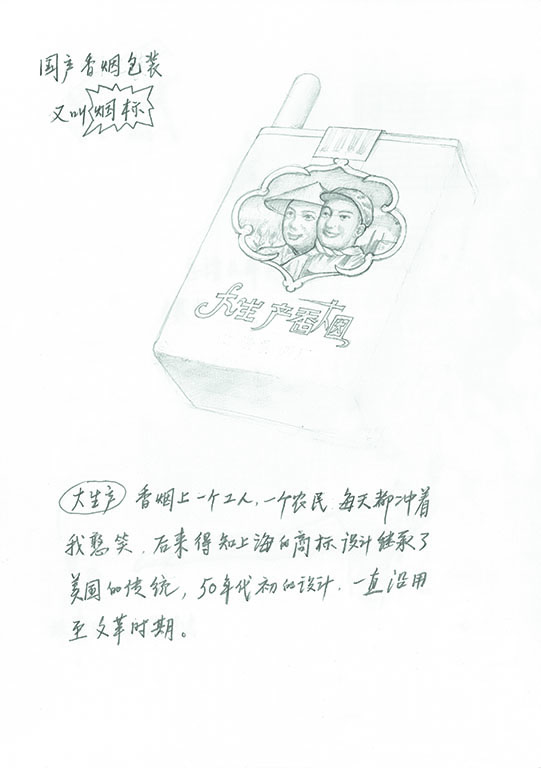 国产香烟包装
又叫烟标
大生产香烟
大生产 香烟上一个工人,一个农民 每天都冲着
我憨笑.后来得知上海的商标设计继承了
美国的传统,50年代初的设计.一直沿用
至文革时期。